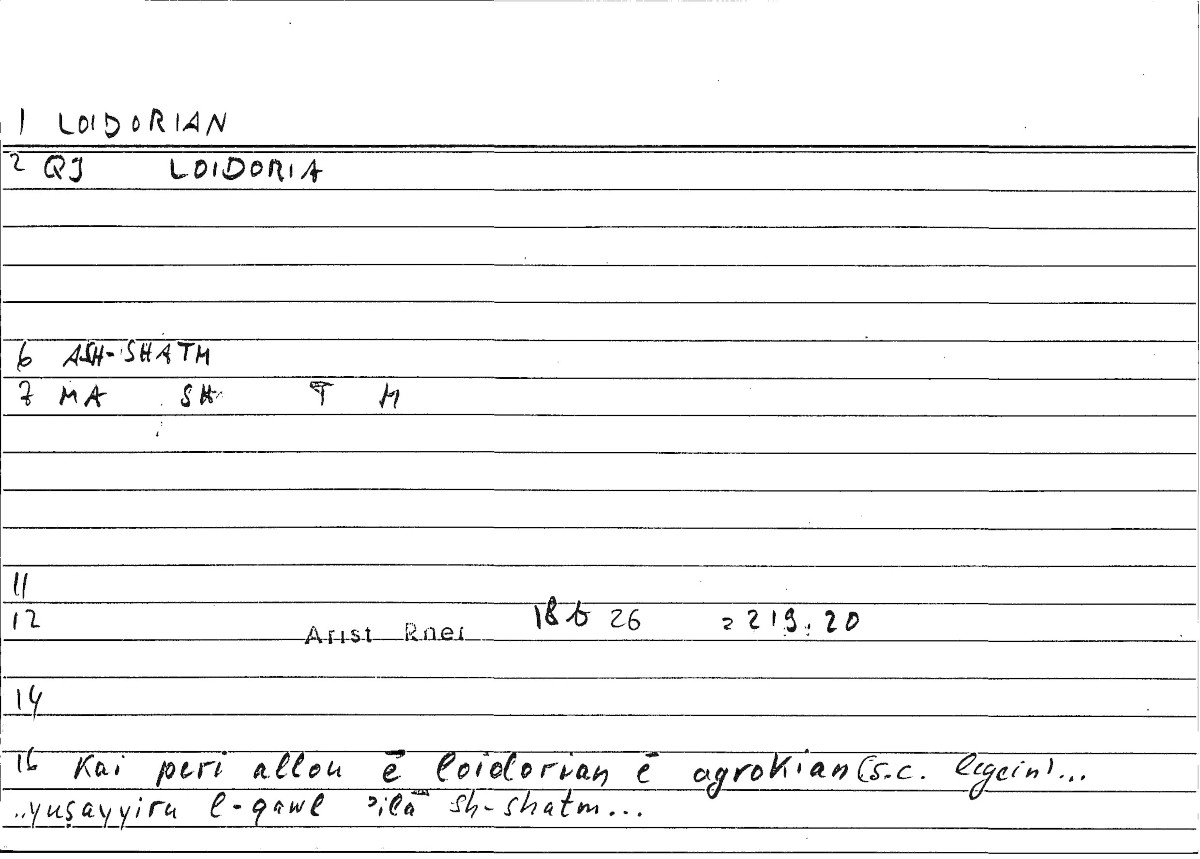 1 LOIDORIAN
2 QJ LOIDORIA
6 ASH-SHATM
7 MA SH T M
11
12 Arist Rhet 18b 26 = 219.20
14
16 Kai peri allou ē loidorian ē agrokian (s.c. legein)...
..yuṣayyiru l-qawl ʾilā sh-shatm...